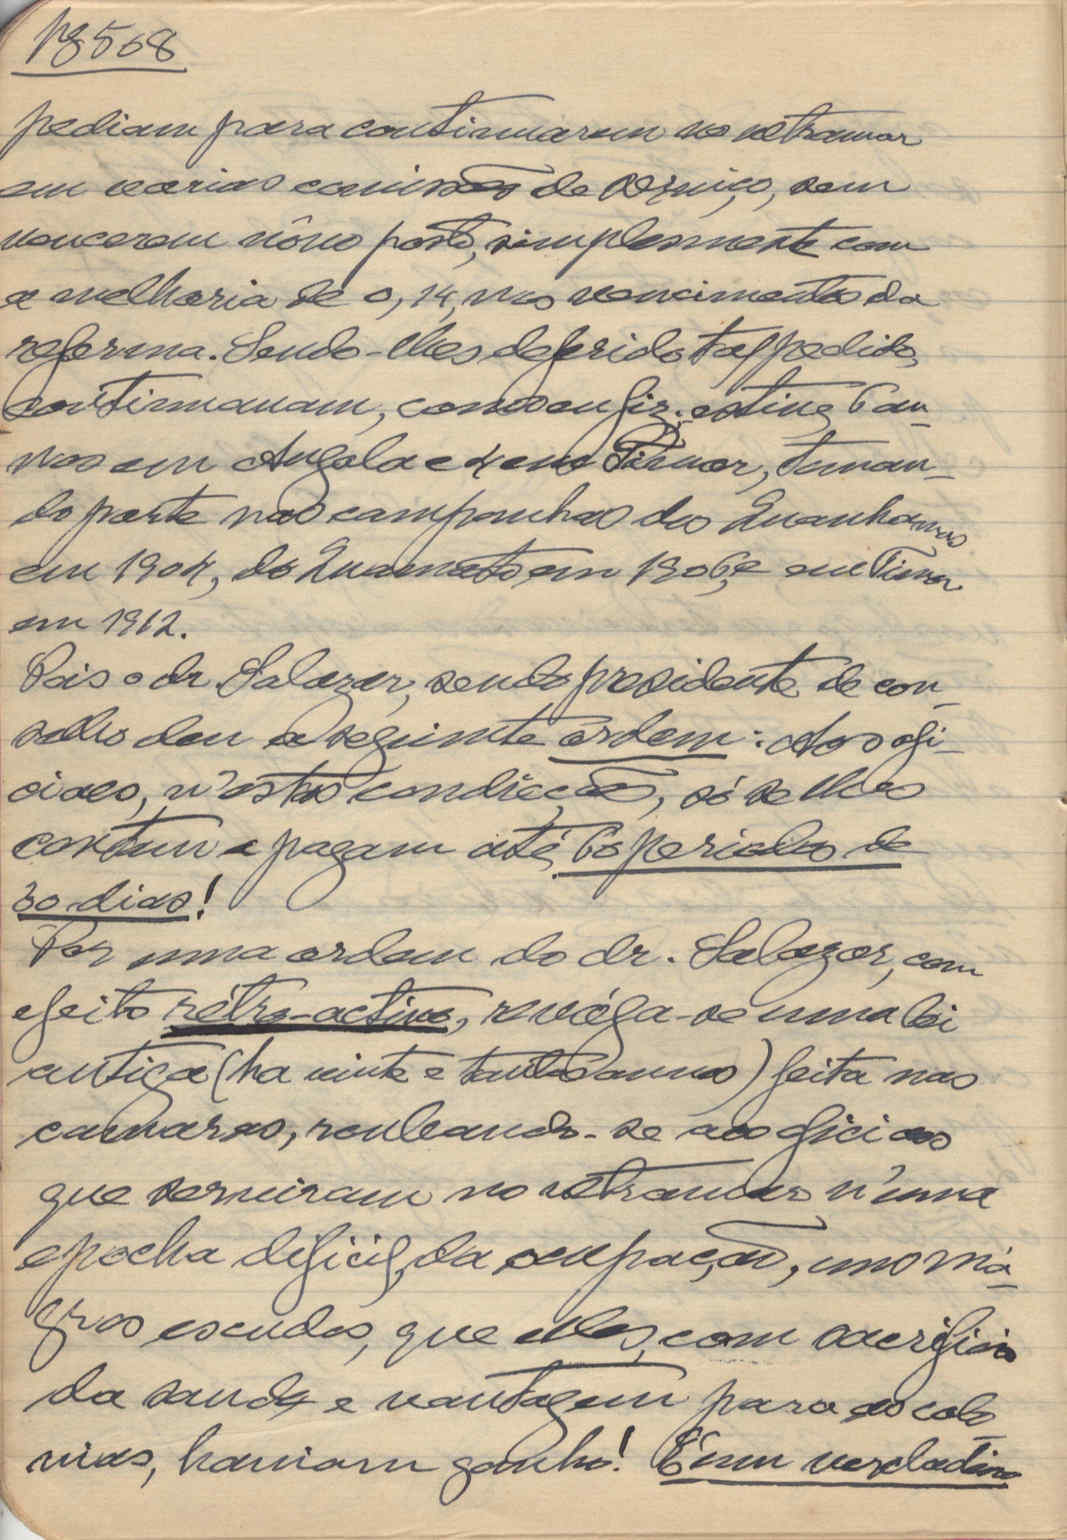 18568
pediam para continuarem no ultramar
em varias comissões de serviço, sem
vencerem nôvo posto, simplesmente com
a melhoria de 0,14, nos vencimentos da
reforma. Sendo-lhes deferido tal pedido,
continuavam, como eu fiz: estive 6 an-
nos em Angola e 4 em Timor, toman-
do parte nas campanhas dos Quanhamas
em 1904, do Quamato em 1906, e em Timor
em 1912.
Pois o dr Salazar, sendo presidente de con-
selho deu a seguinte ordem: Aos ofi-
ciaes, n'estas condicções, só se lhes
contam e pagam até 60 periodos de
30 dias!
Por uma ordem do dr. Salazar, com
efeito rétro-activo, revóga-se uma lei
antiga (ha vinte e tantos annos) feita nas
camaras, roubando-se aos oficiaes
que serviram no ultramar n'uma
epocha dificil, da ocupação, uns má-
gros escudos, que elles, com sacrificio
da saude e vantagem para as colo-
nias, haviam ganho! É um verdadeiro